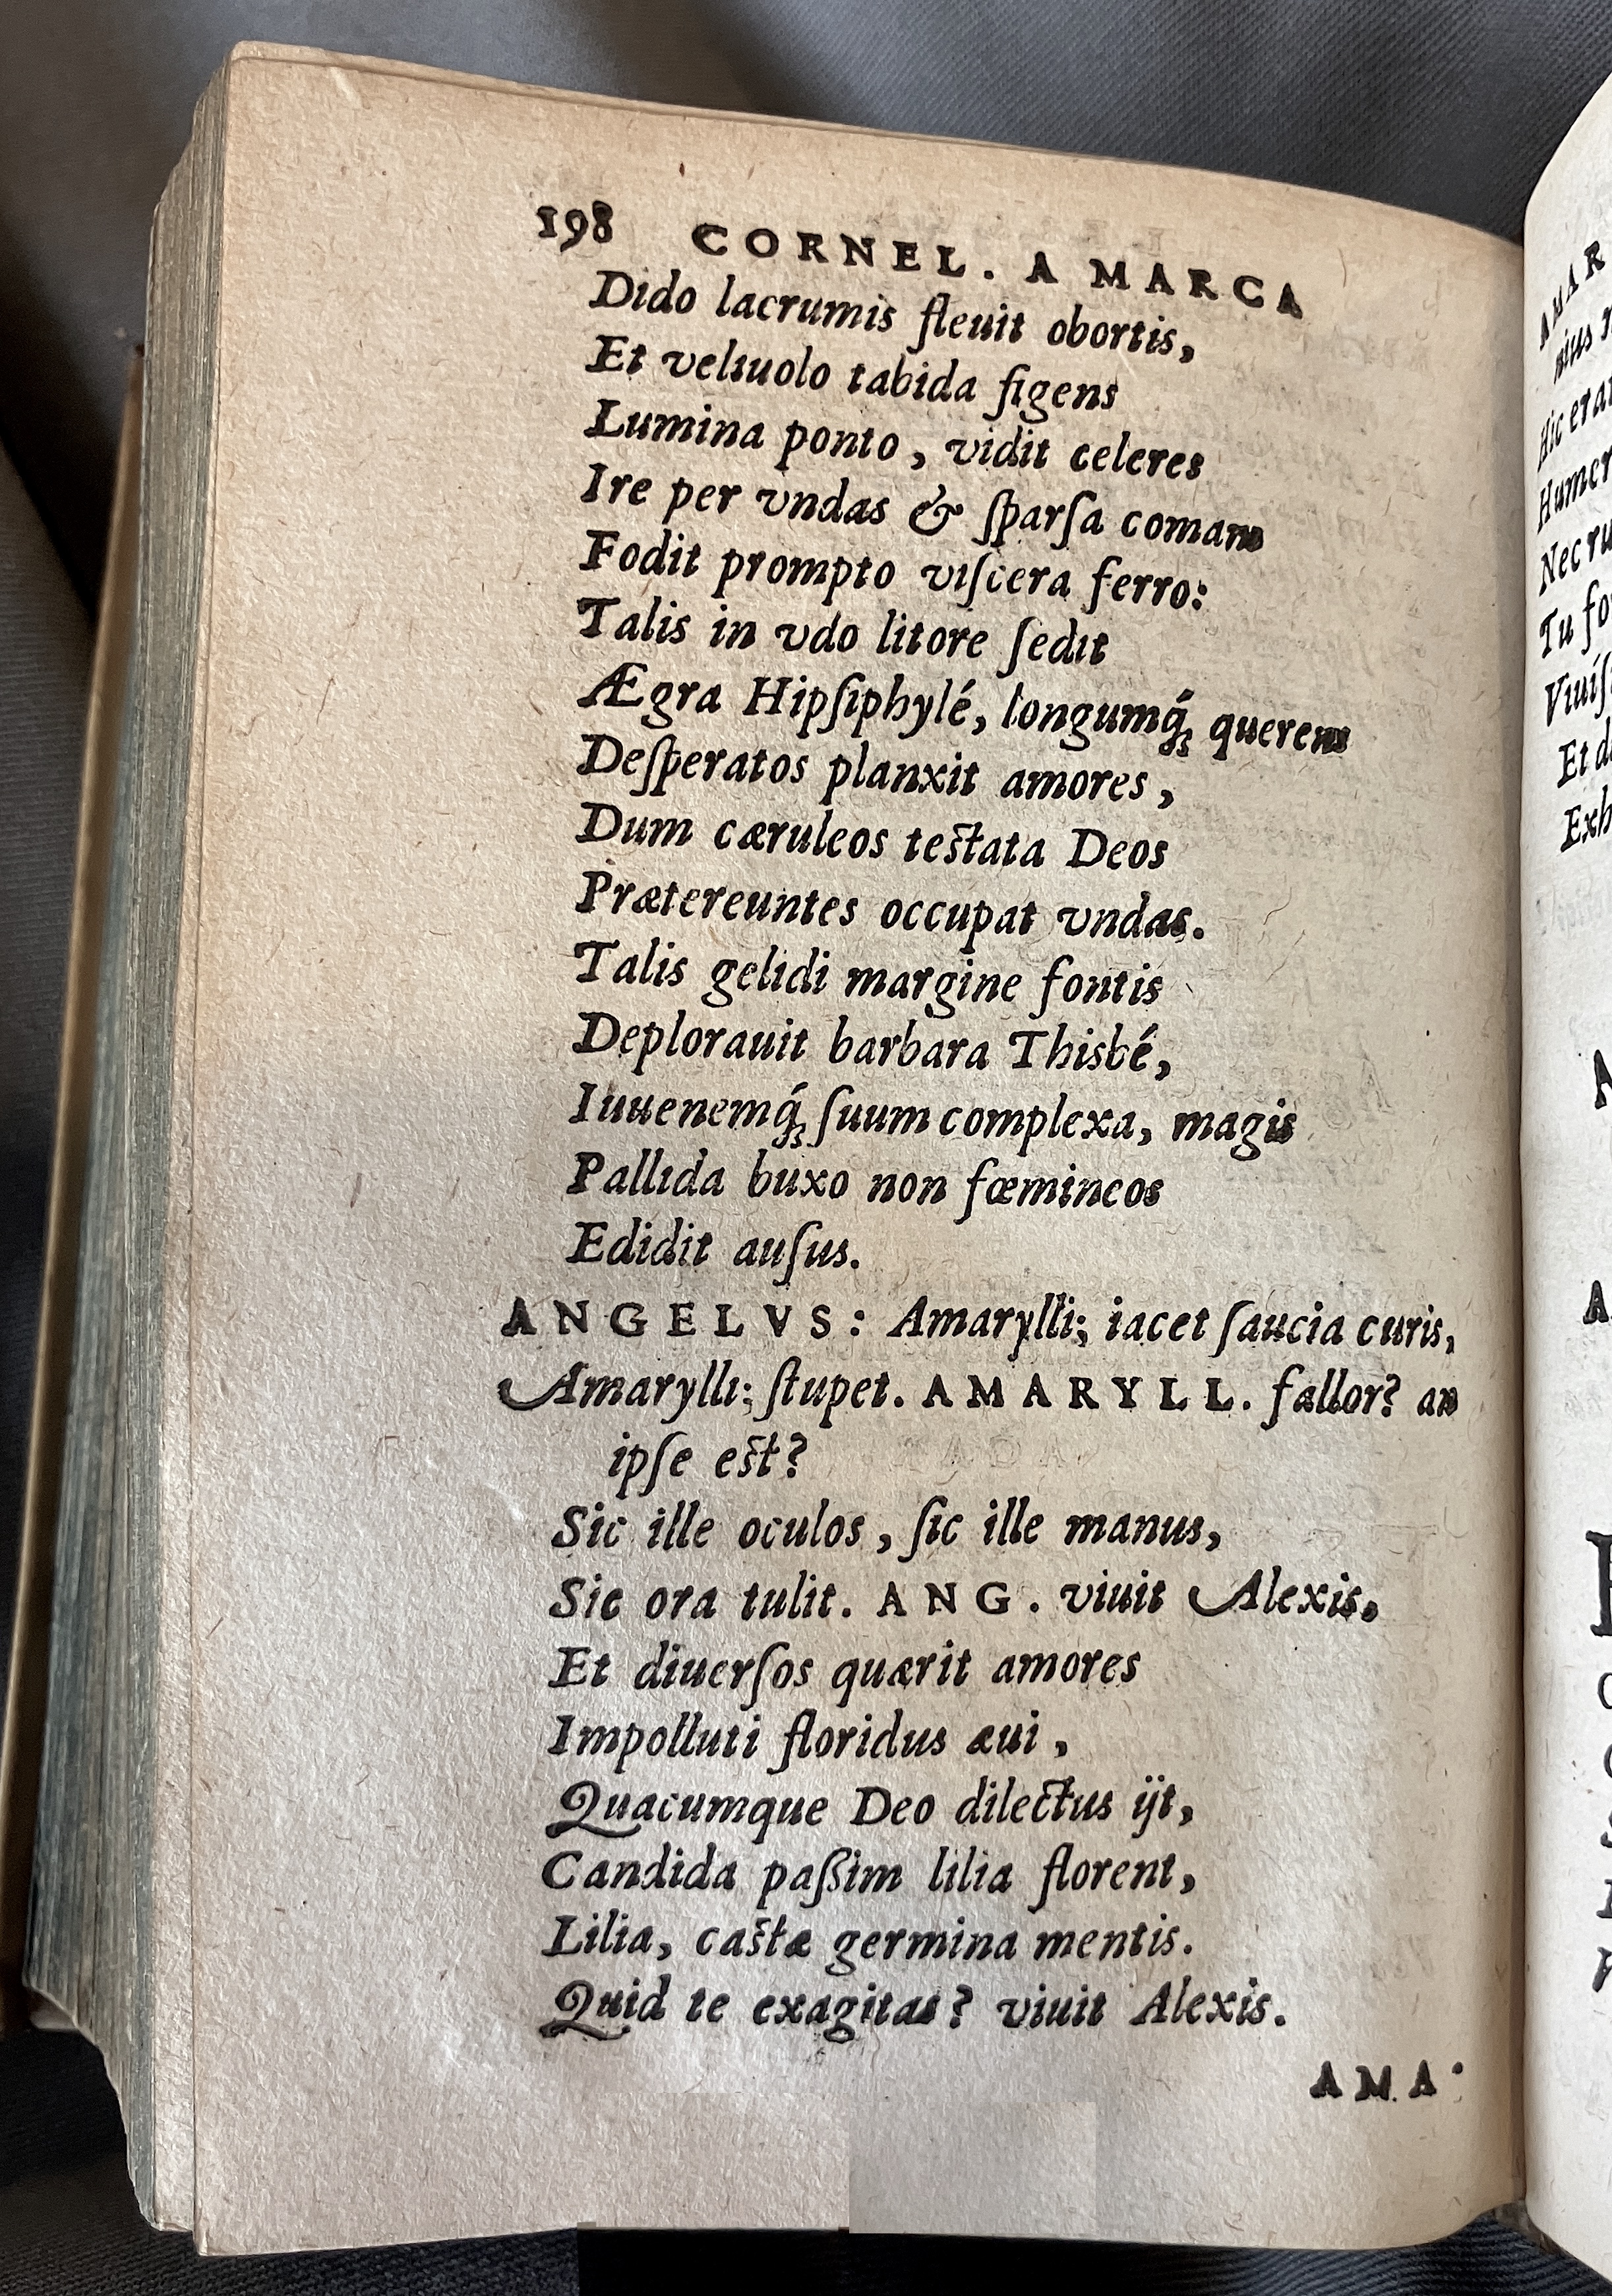 198 CORNEL. A MARCA
Dido lacrumis fleuit obortis,
Et veliuolo tabida figens
Lumina ponto, vidit celeres
Ire per vndas & ſparſa comam
Fodit prompto viſcera ferro:
Talis in vdo litore ſedit
Ægra Hipſiphylé, longumq́ꝫ querens
Deſperatos planxit amores,
Dum cæruleos teſtata Deos
Prætereuntes occupat vndas.
Talis gelidi margine fontis
Deplorauit barbara Thisbé,
Iuuenemq́ꝫ ſuum complexa, magis
Pallida buxo non fœmineos
Edidit auſus.
ANGELVS: Amarylli; iacet ſaucia curis,
Amarylli; ſtupet. AMARYLL. fallor? an
ipſe eſt?
Sic ille oculos, ſic ille manus,
Sic ora tulit. ANG. viuit Alexis,
Et diuerſos quærit amores
Impolluti floridus æui,
Quacumque Deo dilectus ijt,
Candida paſſim lilia florent,
Lilia, caſtæ germina mentis.
Quid te exagitas? viuit Alexis.
AMA-
AMAR
nius
Hic eran
Humer
Nec ru
Tu fo
Viuiſ
Et d
Exh
A